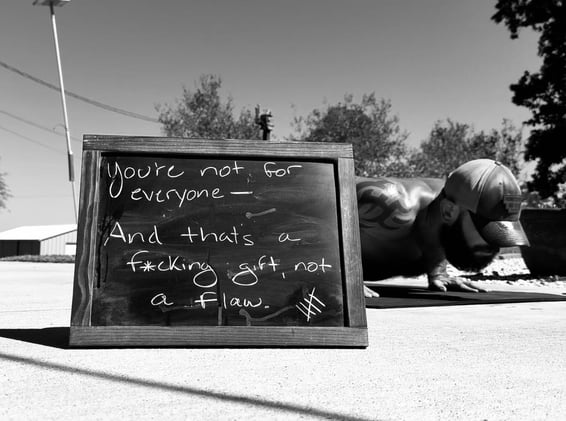 You're not for
everyone —
And that's a
f*cking gift, not
a flaw.